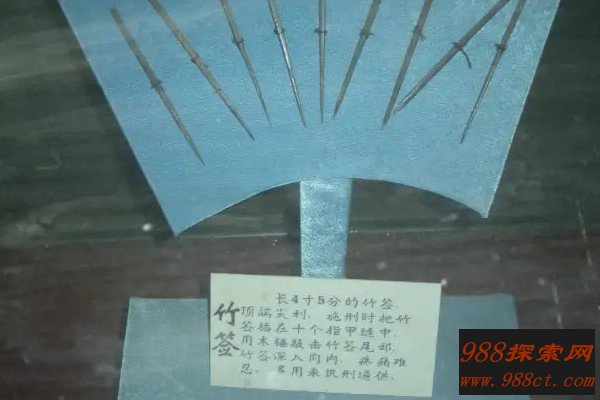 竹签
长4寸5分的竹签.
顶端尖利. 施刑时把竹
签插在十个指甲缝中.
用木锤敲击竹签尾部.
竹签深入肉内. 疼痛难
忍. 多用来讯刑逼供.
988探索网
www.988ct.com